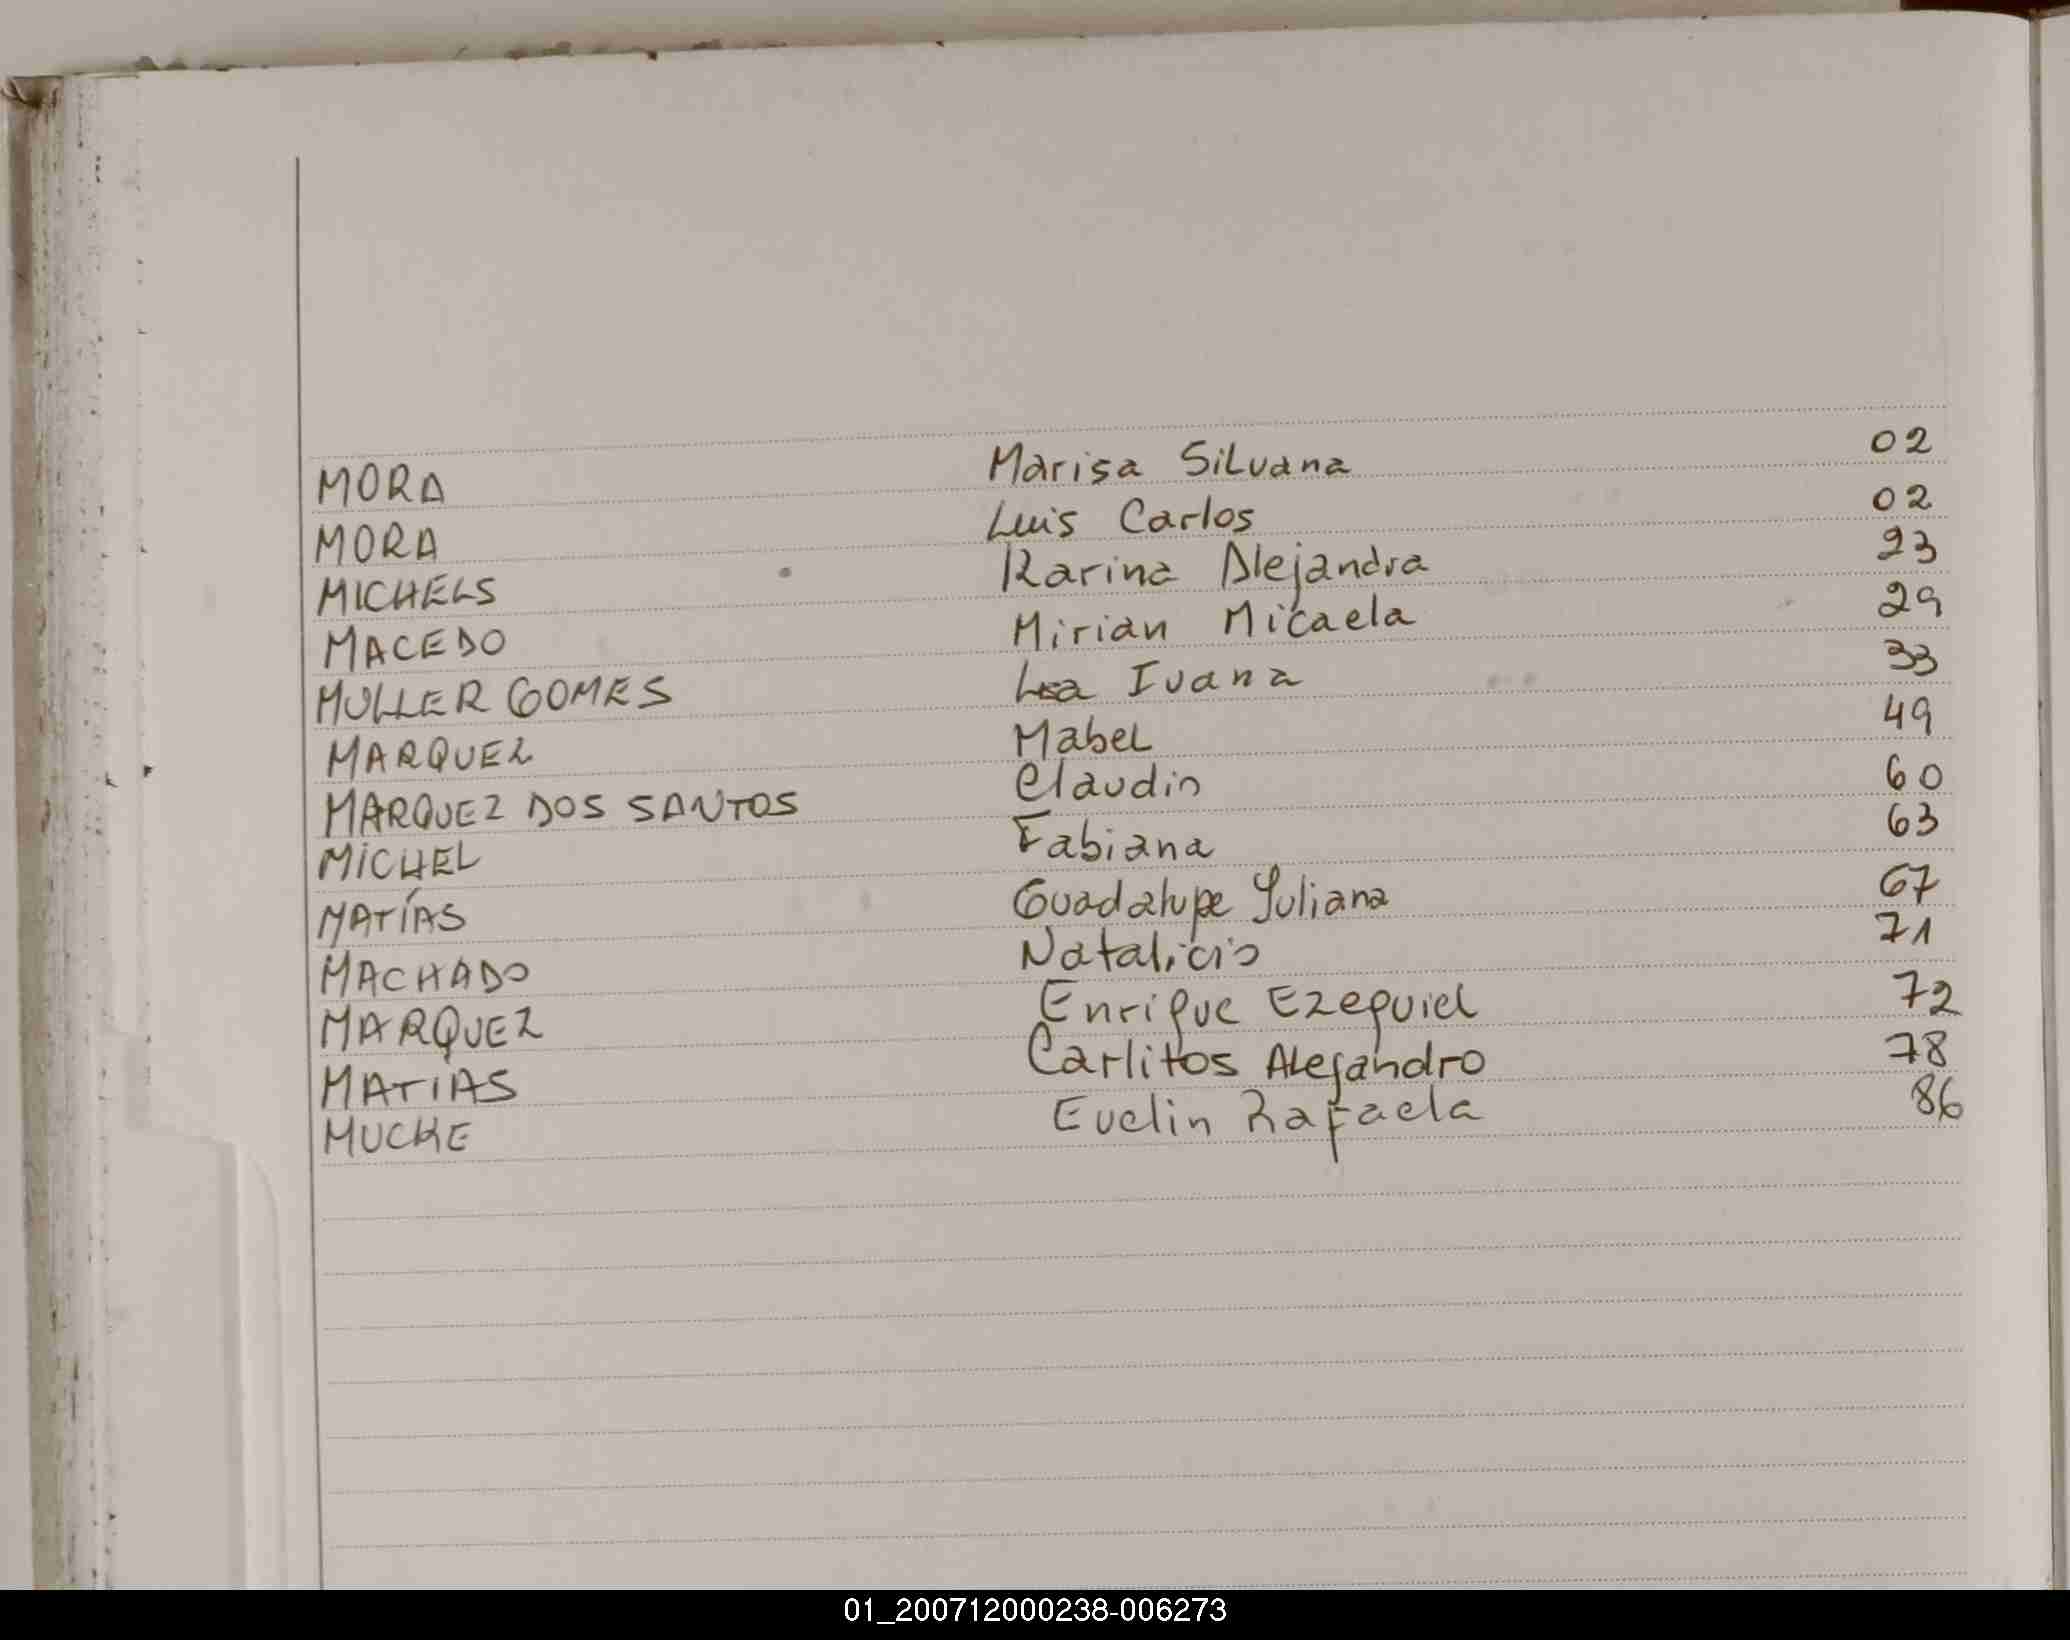 MORA Marisa Silvana 02
MORA Luis Carlos 02
MICHELS Karina Alejandra 23
MACEDO Mirian Micaela 29
MULLER GOMES Lea Ivana 33
MARQUEZ Mabel 49
MARQUEZ DOS SANTOS Claudio 60
MICHEL Fabiana 63
MATÍAS Guadalupe Juliana 67
MACHADO Natalicio 71
MARQUEZ Enrique Ezequiel 72
MATIAS Carlitos Alejandro 78
MUCKE Evelin Rafaela 86
01_200712000238-006273